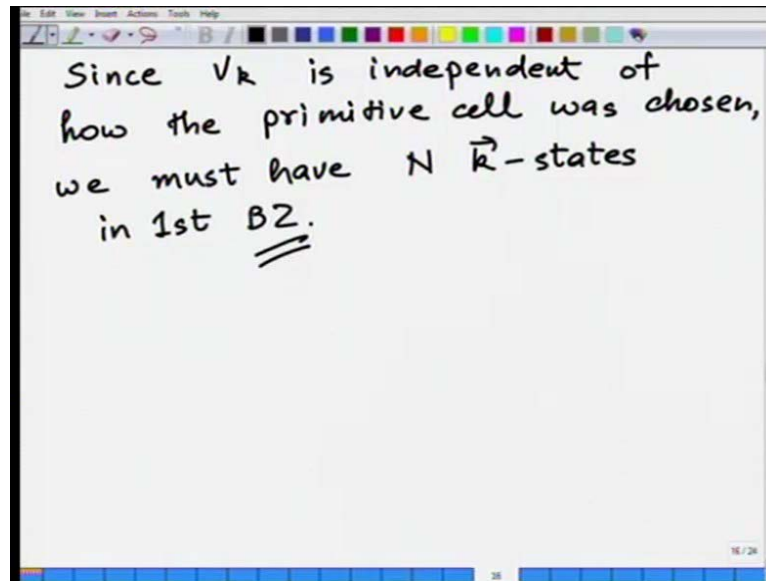 File Edit View Insert Actions Tools Help
Since V_k is independent of
how the primitive cell was chosen,
we must have N k⃗-states
in 1st BZ.
16/24
16